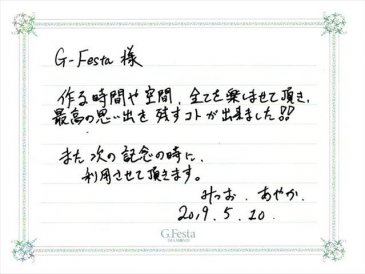 G-Festa 様
作る時間や空間、全てを楽しませて頂き、
最高の思い出を残すコトが出来ました!!
また次の記念の時に、
利用させて頂きます。
みつお. あやか.
2019. 5. 20.
G.Festa